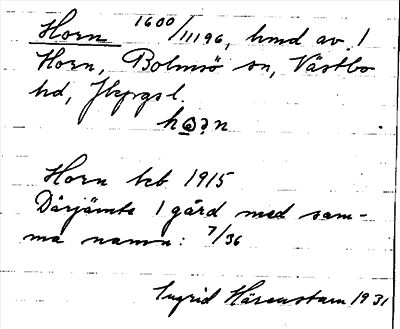 Horn 1600/11196, hmd av. 1
Horn, Bolmsö sn, Västbo
hd, Jkpgs l.
Horn beb 1915
Därjämte 1 gård med sam-
ma namn: 7/36
Ingrid Härenstam 1931